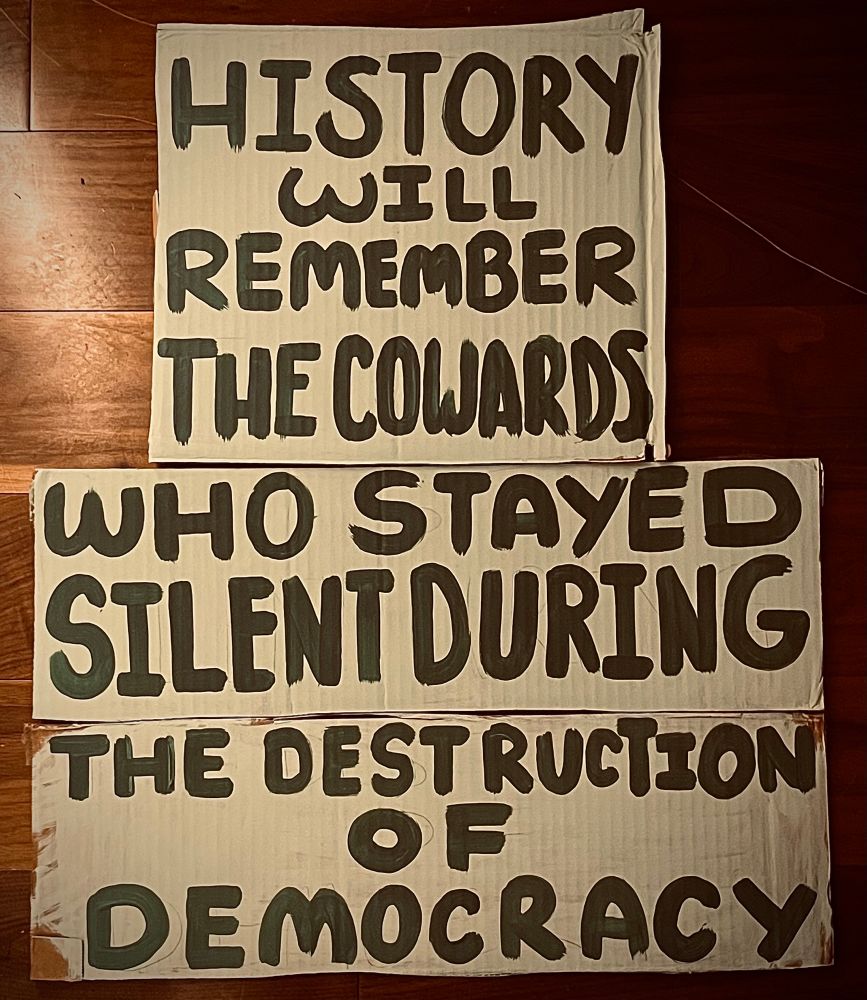 HISTORY
WILL
REMEMBER
THE COWARDS
WHO STAYED
SILENT DURING
THE DESTRUCTION
OF
DEMOCRACY